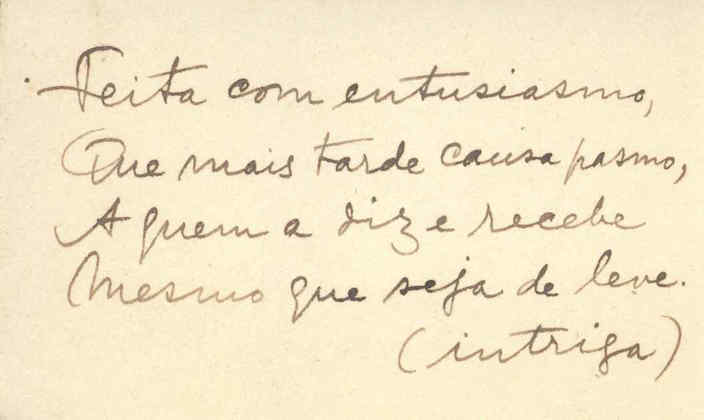 Feita com entusiasmo,
Que mais tarde causa pasmo,
A quem a diz e recebe
Mesmo que seja de leve.
(intriga)